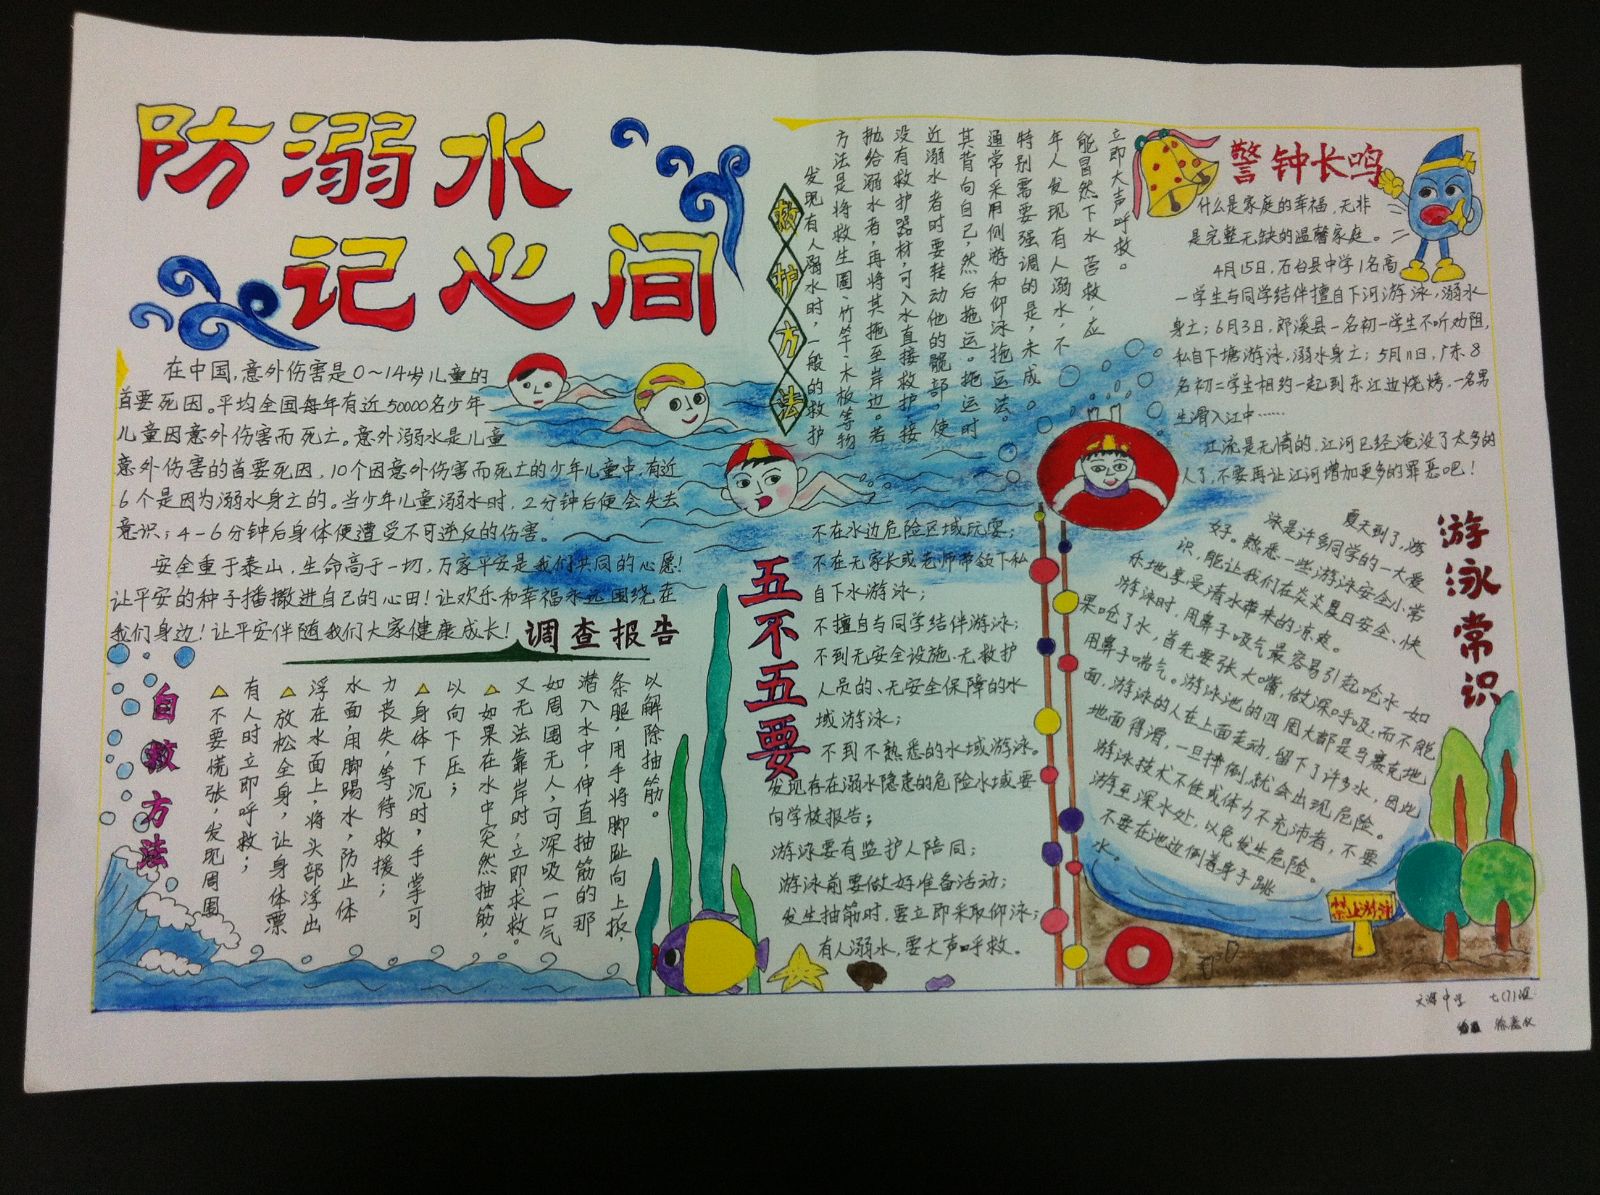 防溺水
记心间
在中国,意外伤害是0～14岁儿童的
首要死因。平均全国每年有近50000名少年
儿童因意外伤害而死亡。意外溺水是儿童
意外伤害的首要死因,10个因意外伤害而死亡的少年儿童中,有近
6个是因为溺水身亡的。当少年儿童溺水时,2分钟后便会失去
意识;4-6分钟后身体便遭受不可逆反的伤害。
安全重于泰山,生命高于一切,万家平安是我们共同的心愿!
让平安的种子播撒进自己的心田!让欢乐和幸福永远围绕在
我们身边!让平安伴随我们大家健康成长!
调查报告
自救方法
△不要慌张,发现周围
有人时立即呼救;
△放松全身,让身体漂
浮在水面上,将头部浮出
水面,用脚踢水,防止体
力丧失,等待救援;
△身体下沉时,手掌可
以向下压;
△如果在水中突然抽筋,
又无法靠岸时,立即求救。
如周围无人,可深吸一口气
潜入水中,伸直抽筋的那
条腿,用手将脚趾向上扳,
以解除抽筋。
救护方法
发现有人溺水时,一般的救护
方法是将救生圈、竹竿、木板等物
抛给溺水者,再将其拖至岸边。若
没有救护器材,可入水直接救护。接
近溺水者时要转动他的髋部,使
其背向自己,然后拖运。拖运时
通常采用侧游和仰泳拖运法。
特别需要强调的是,未成
年人发现有人溺水,不
能冒然下水营救,应
立即大声呼救。
五不五要
不在水边危险区域玩耍;
不在无家长或老师带领下私
自下水游泳;
不擅自与同学结伴游泳;
不到无安全设施、无救护
人员的、无安全保障的水
域游泳;
不到不熟悉的水域游泳。
发现存在溺水隐患的危险水域要
向学校报告;
游泳要有监护人陪同;
游泳前要做好准备活动;
发生抽筋时,要立即采取仰泳;
有人溺水,要大声呼救。
警钟长鸣
什么是家庭的幸福,无非
是完整无缺的温馨家庭。
4月15日,石台县中学1名高
一学生与同学结伴擅自下河游泳,溺水
身亡;6月3日,郎溪县一名初一学生不听劝阻,
私自下塘游泳,溺水身亡;5月11日,广东8
名初二学生相约一起到东江边烧烤,一名男
生滑入江中……
江流是无情的,江河已经淹没了太多的
人了,不要再让江河增加更多的罪恶吧!
游泳常识
夏天到了,游
泳是许多同学的一大爱
好。熟悉一些游泳安全小常
识,能让我们在炎炎夏日安全、快
乐地享受清水带来的凉爽。
游泳时,用鼻子吸气最容易引起呛水,如
果呛了水,首先要张大嘴,做深呼吸,而不能
用鼻子喘气。游泳池的四周大都是马赛克地
面,游泳的人在上面走动,留下了许多水,因此
地面得滑,一旦摔倒,就会出现危险。
游泳技术不佳或体力不充沛者,不要
游至深水处,以免发生危险。
不要在池边倒着身子跳
水。
禁止游泳
中学 七(7)班